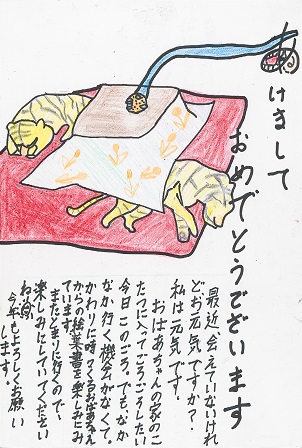 あけまして
おめでとうございます
最近、会えていないけれ
どお元気ですか？
私は元気です。
おばあちゃんの家のこ
たつに入ってごろごろしたい
今日このごろ。でも、なか
なか行く機会がなくて、
かわりに時々くるおばあちゃん
からの絵葉書を楽しみにし
ています。
またとまりに行くので、
楽しみにしていてください
ね。
今年もよろしくお願い
します。